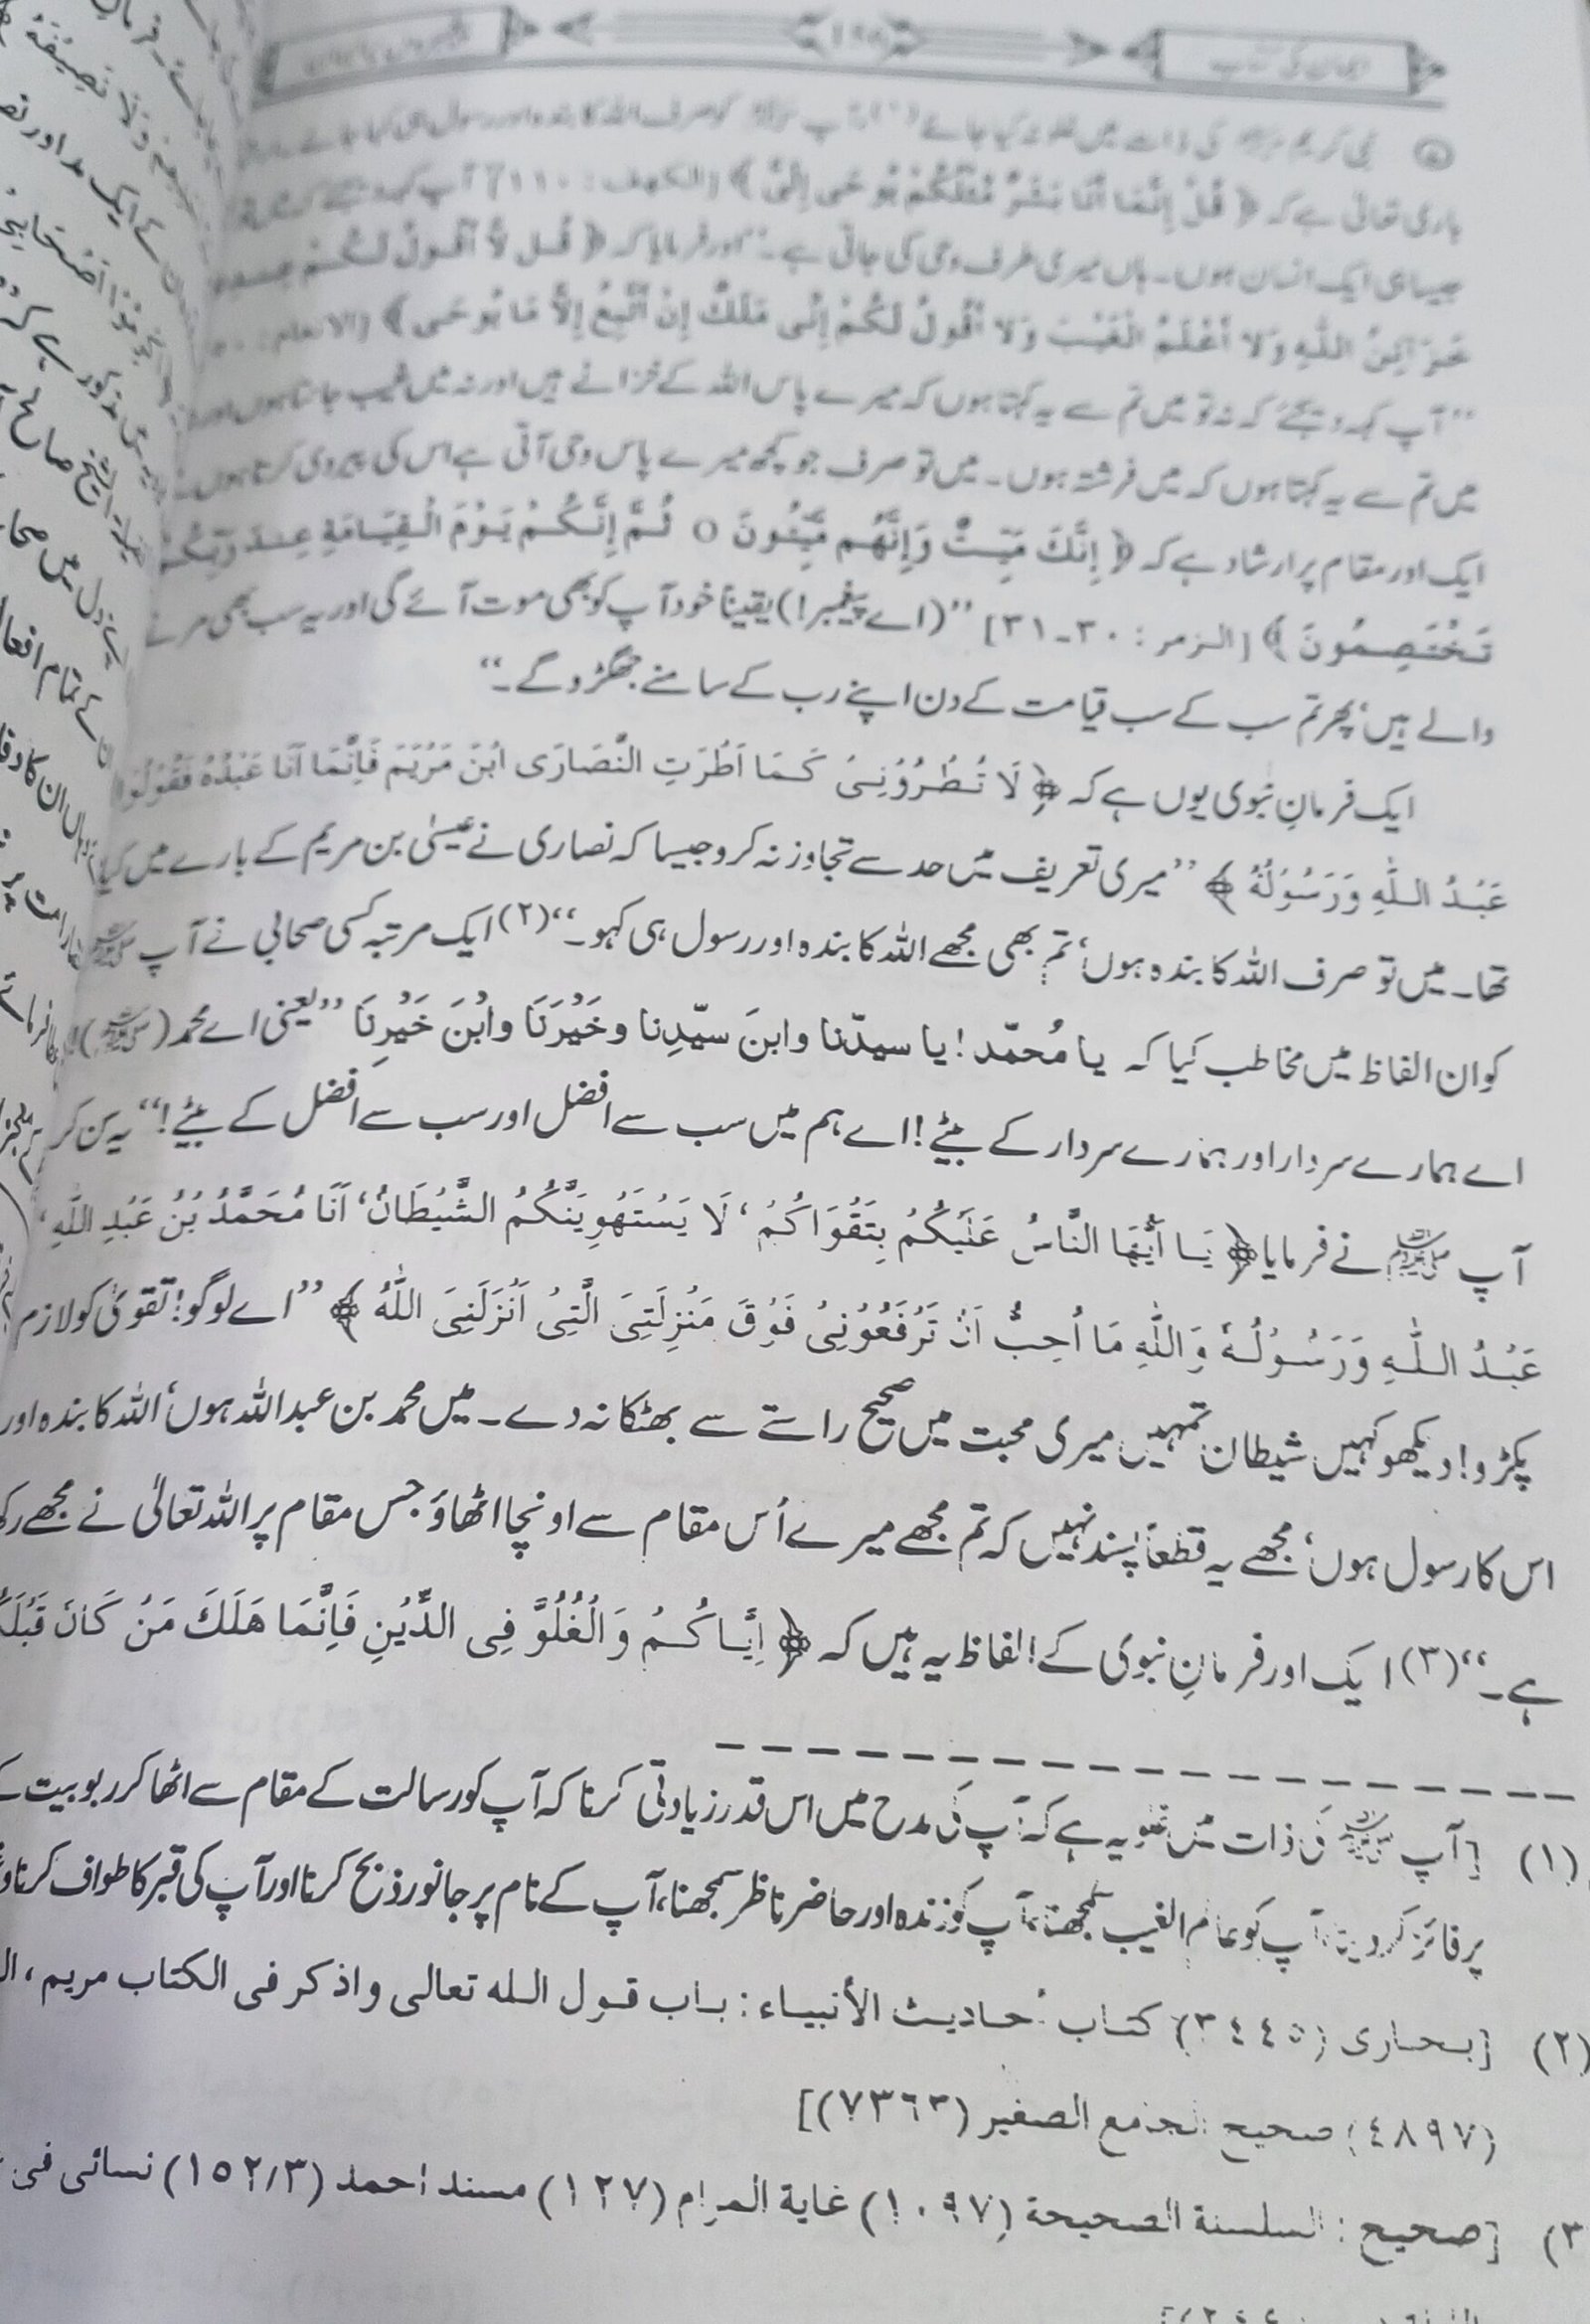 ایمان کی کتاب
نبی کریم ﷺ کی ذات میں غلو نہ کیا جائے (۱) آپ ﷺ کو صرف اللہ کا بندہ اور رسول ہی کہا جائے
باری تعالیٰ ہے کہ ﴿ قُلْ إِنَّمَا أَنَا بَشَرٌ مِّثْلُكُمْ يُوحَى إِلَيَّ ﴾ [الكهف : ۱۱۰] آپ کہہ دیجئے کہ
جیسا ہی ایک انسان ہوں۔ ہاں میری طرف وحی کی جاتی ہے۔‘‘ اور فرمایا کہ ﴿ قُل لَّا أَقُولُ لَكُمْ عِندِي
خَزَائِنُ اللَّهِ وَلَا أَعْلَمُ الْغَيْبَ وَلَا أَقُولُ لَكُمْ إِنِّي مَلَكٌ إِنْ أَتَّبِعُ إِلَّا مَا يُوحَى ﴾ [الانعام :
’’آپ کہہ دیجئے کہ نہ تو میں تم سے یہ کہتا ہوں کہ میرے پاس اللہ کے خزانے ہیں اور نہ میں غیب جانتا ہوں اور
میں تم سے یہ کہتا ہوں کہ میں فرشتہ ہوں۔ میں تو صرف جو کچھ میرے پاس وحی آتی ہے اس کی پیروی کرتا ہوں
ایک اور مقام پر ارشاد ہے کہ ﴿ إِنَّكَ مَيِّتٌ وَإِنَّهُم مَّيِّتُونَ ٥ ثُمَّ إِنَّكُمْ يَوْمَ الْقِيَامَةِ عِندَ رَبِّكُمْ
تَخْتَصِمُونَ ﴾ [الزمر : ۳۰۔۳۱] ’’(اے پیغمبر!) یقیناً خود آپ کو بھی موت آئے گی اور یہ سب بھی مرنے
والے ہیں، پھر تم سب کے سب قیامت کے دن اپنے رب کے سامنے جھگڑو گے۔‘‘
ایک فرمانِ نبوی یوں ہے کہ ﴿ لَا تُطْرُوْنِيْ كَمَا اَطْرَتِ النَّصَارَى ابْنَ مَرْيَمَ فَاِنَّمَا اَنَا عَبْدُهُ فَقُوْلُوْا
عَبْدُ اللّٰهِ وَرَسُوْلُهُ ﴾ ’’میری تعریف میں حد سے تجاوز نہ کرو جیسا کہ نصاری نے عیسیٰ بن مریم کے بارے میں کیا
تھا۔ میں تو صرف اللہ کا بندہ ہوں، تم بھی مجھے اللہ کا بندہ اور رسول ہی کہو۔‘‘(۲) ایک مرتبہ کسی صحابی نے آپ ﷺ
کو ان الفاظ میں مخاطب کیا کہ یا مُحمّد! یا سیدّنا وابنَ سیّدِنا وخَيْرَنَا وابْنَ خَيْرِنَا ’’یعنی اے محمد (ﷺ)!
اے ہمارے سردار اور ہمارے سردار کے بیٹے! اے ہم میں سب سے افضل اور سب سے افضل کے بیٹے!‘‘ یہ سن کر
آپ ﷺ نے فرمایا ﴿ يَا أَيُّهَا النَّاسُ عَلَيْكُمْ بِتَقْوَاكُمْ، لَا يَسْتَهْوِيَنَّكُمُ الشَّيْطَانُ، اَنَا مُحَمَّدُ بْنُ عَبْدِ اللّٰهِ،
عَبْدُ اللّٰهِ وَرَسُوْلُهُ وَاللّٰهِ مَا اُحِبُّ اَنْ تَرْفَعُوْنِيْ فَوْقَ مَنْزِلَتِيَ الَّتِيْ اَنْزَلَنِيَ اللّٰهُ ﴾ ’’اے لوگو! تقویٰ کو لازم
پکڑو! دیکھو کہیں شیطان تمہیں میری محبت میں صحیح راستے سے بھٹکا نہ دے۔ میں محمد بن عبداللہ ہوں، اللہ کا بندہ اور
اس کا رسول ہوں، مجھے یہ قطعاً پسند نہیں کہ تم مجھے میرے اُس مقام سے اونچا اٹھاؤ جس مقام پر اللہ تعالیٰ نے مجھے
ہے۔‘‘(۳) ایک اور فرمانِ نبوی کے الفاظ یہ ہیں کہ ﴿ اِيَّاكُمْ وَالْغُلُوَّ فِي الدِّيْنِ فَاِنَّمَا هَلَكَ مَنْ كَانَ
(۱) [آپ ﷺ کی ذات میں غلو یہ ہے کہ آپ کی مدح میں اس قدر زیادتی کرنا کہ آپ کو رسالت کے مقام سے اٹھا کر ربوبیت کے
پر فائز کر دینا، آپ کو عالم الغیب سمجھنا، آپ کو زندہ اور حاضر ناظر سمجھنا، آپ کے نام پر جانور ذبح کرنا اور آپ کی قبر کا طواف کرنا
(۲) [بخاری (٣٤٤٥) کتاب أحادیث الأنبیاء : باب قول اللہ تعالی واذکر فی الکتاب مریم،
(٤٨٩٧) صحیح الجامع الصغیر (٧٣٦٣)]
(۳) [صحیح : السلسلة الصحیحة (١٠٩٧) غایة المرام (١٢٧) مسند احمد (١٥٢/٣) نسائی فی